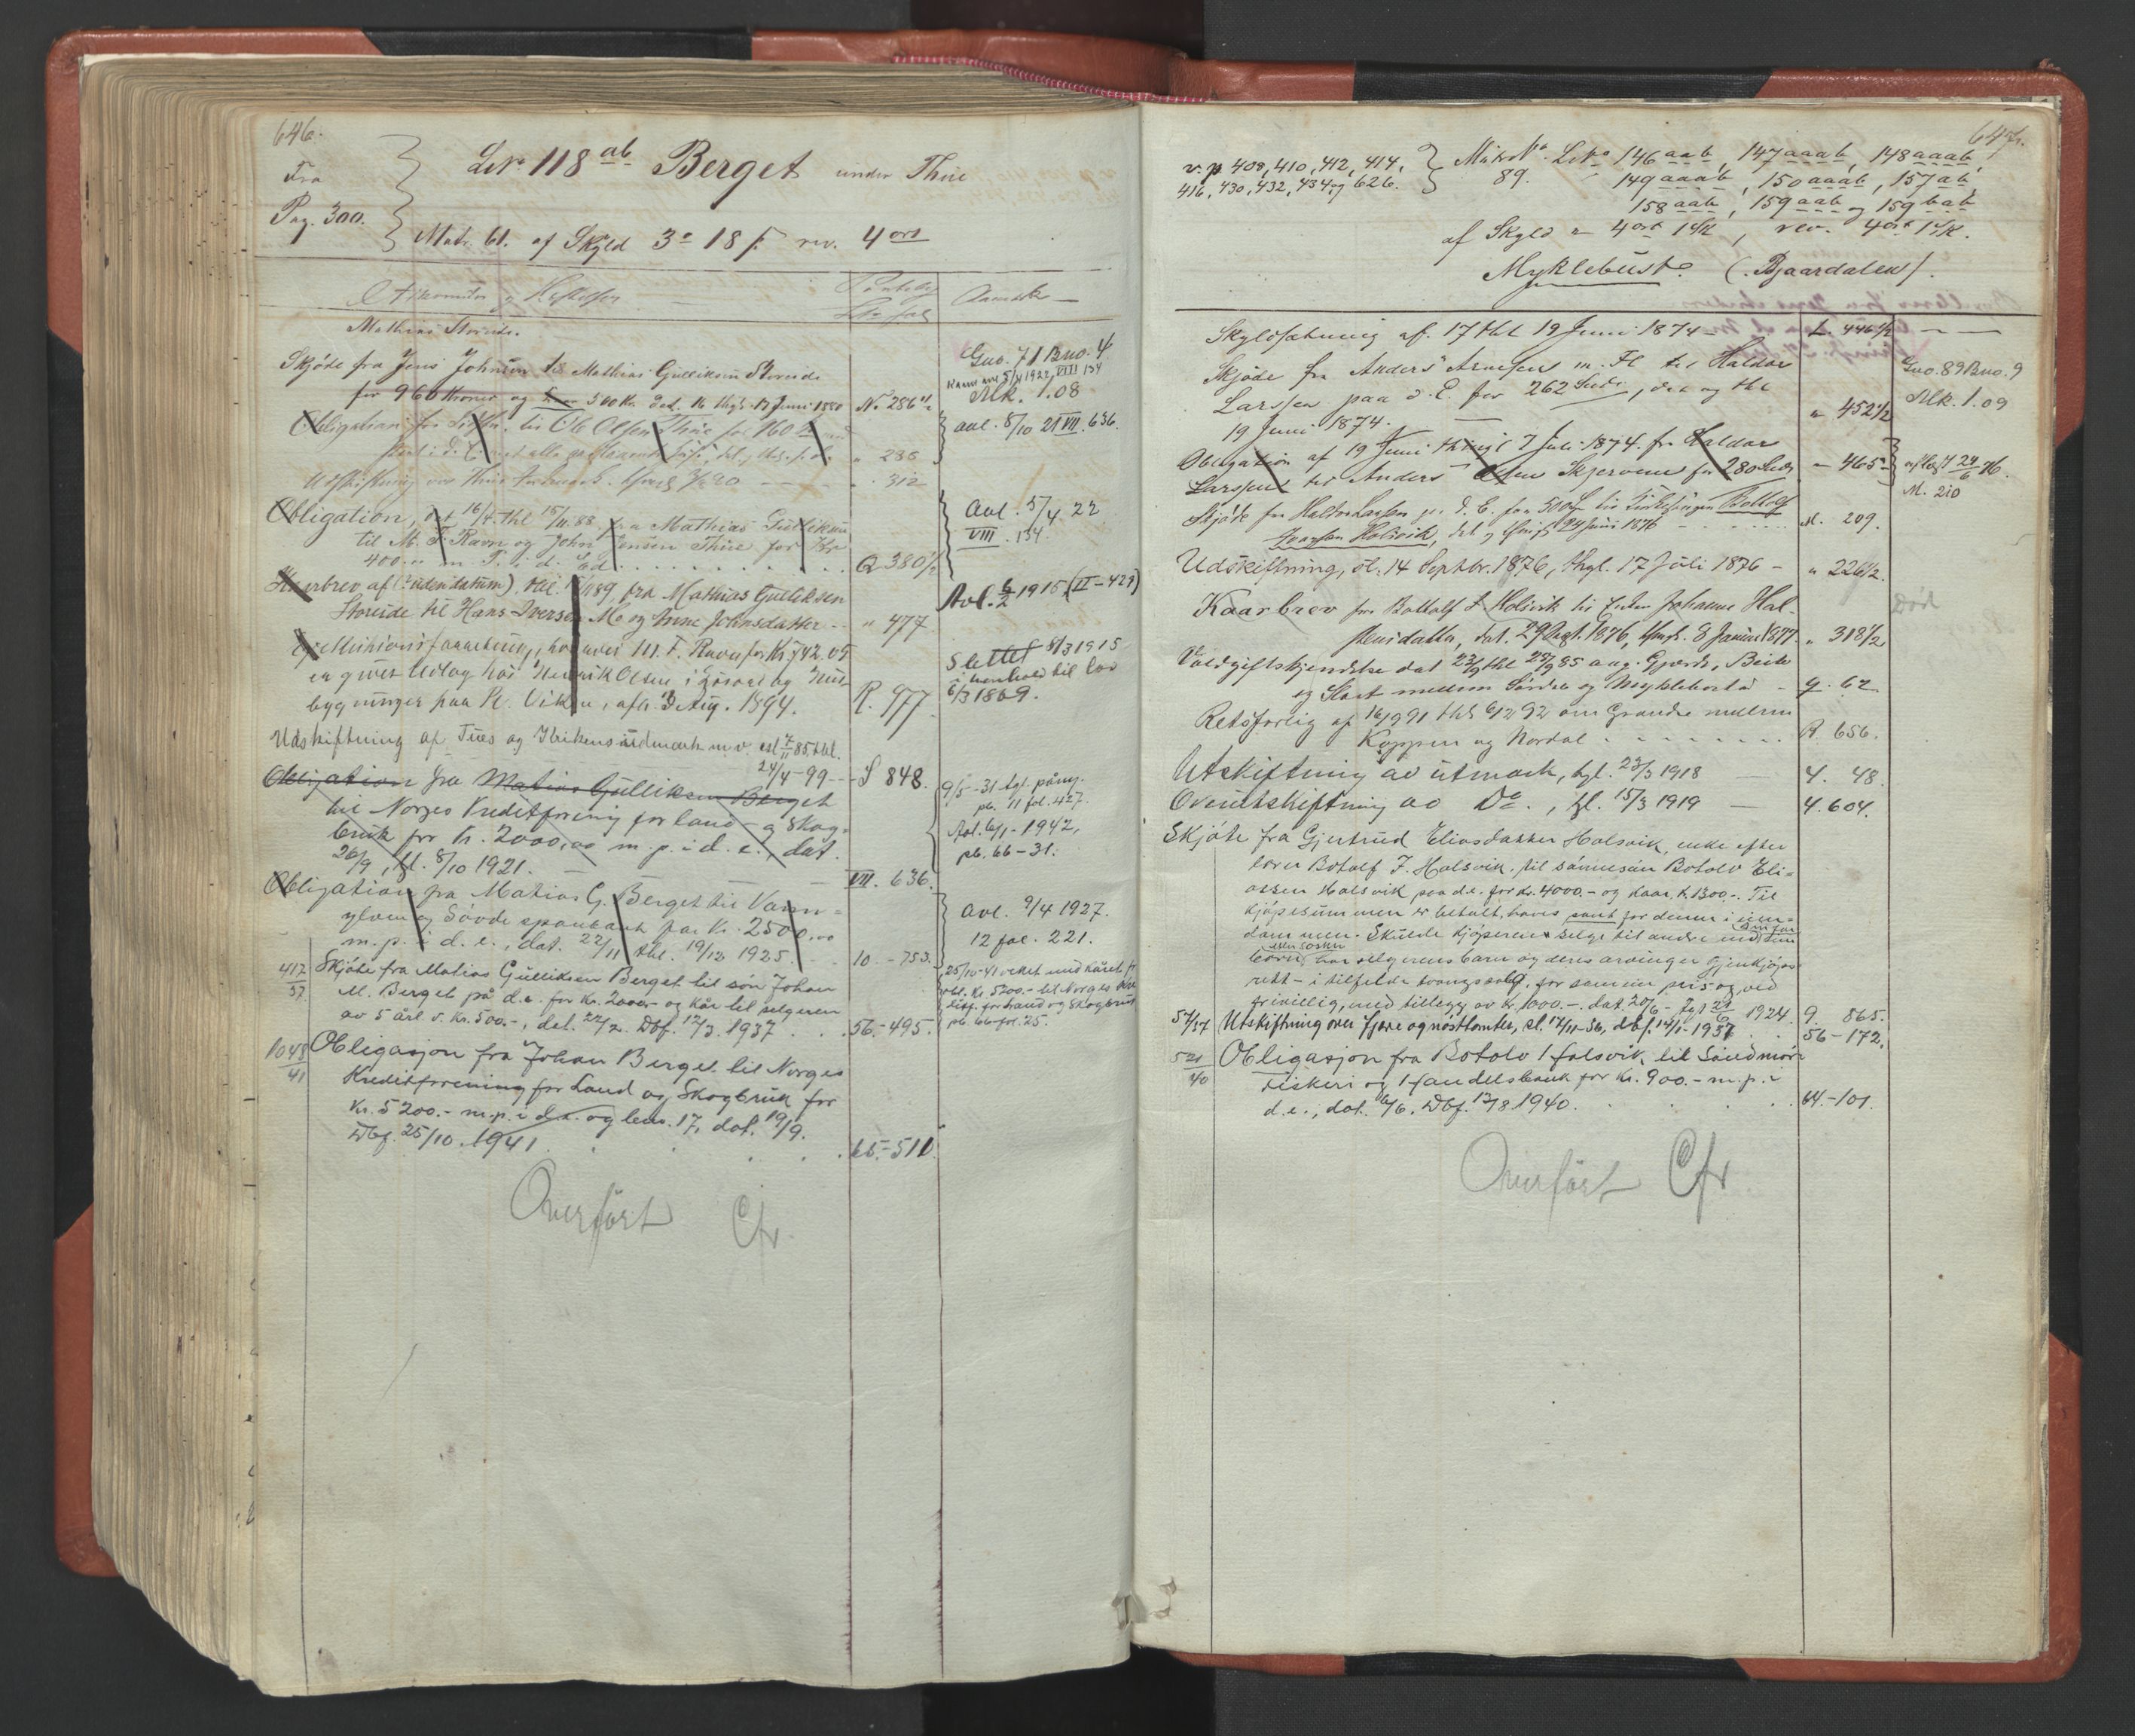 646.
Fra
Pag. 300.
LNo 118 ab Berget under Thue
Matr. 61. af Skyld 3 - 18 ß rev. 4 ort
Adkomster og Heftelser
Pantebog
Litr. fol.
Anmærk
Mathias Storeide.
Skjøde fra Jens Johnsen til Mathias Gulliksen Storeide
for 960 Kroner og 500 Kr. dat. 16 thgl. 17 Juni 1880
N. 286 1/2
Gno. 71 Bno. 4
5/4 1922, VIII 134
Mk. 1.08
Obligation fra til Ole Olsen Thue for 160
" 286
avl. 8/10 21 VII. 636.
Udskiftning
" 312
Obligation, dat 16/4 thl 15/11 88 fra Mathias Gulliksen
til M. F. Ravn og John Jensen Thue for Kr
400 m P. i d. Ed.
Q 380 1/2
Avl. 5/4 22
VIII. 134.
Kaarbrev af (udendatum) thl. 89 fra Mathias Gulliksen
Storeide til Hans Iversen M og Anne Johnsdatter
" 477
Avl. 6/2 1915 (II-429)
M. F. Ravn for Kr. 742.05
er gives Udlag hos Henrik Olsen i Huse
bygninger paa Kl. Viken, afh. 3 Aug. 1894.
R. 977
Slettet 8/3 1915
i henhold til lov
6/3 1869.
Udskiftning af Tues og Vikens udmark m.v. sl 7/11 85 thl.
24/4 - 99 -
S 848.
Obligation fra Matias Gulliksen Berget
til Norges Kreditforening for land- og skog-
bruk for kr. 2000,00 m. p. i d. e., dat.
26/9, tgl. 8/10 1921.
VII. 636.
9/5 - 31 tgl. påny.
pb. 11 fol. 427.
Avl. 6/1 - 1942,
pb. 66 - 31.
Obligation fra Matias G. Berget til Vann-
ylven og Søvde sparebank for Kr. 2500,00
m. p. i d. e., dat. 22/11 thl. 19/12 1925.
10. - 753.
Avl. 9/4 1927.
12 fol. 221.
417
37
Skjøte fra Matias Gulliksen Berget til søn Johan
M. Berget på d.e. for kr. 2000,- og kår til selgeren
av 5 årl. v. Kr. 500.-, dat. 22/2. Dbf. 12/3. 1937
56.-495.
25/10-41 veket med kåret for
obl. kr. 5200.- til Norges Kre-
ditf. for land og skogbruk
pb. 66 fol. 25.
1048
41
Obligasjon fra Johan Berget til Norges
Kreditforening for Land og Skogbruk for
Kr. 5200.- m.p. i d.e. og bnr. 17, dat. 19/9.
Dbf. 25/10. 1941
65.-511.
Overført Cfr.
647.
v. p. 408, 410, 412, 414,
416, 430, 432, 434 og 626.
Matr No. LNo 146 aab, 147 aaab, 148 aaab,
89. 149 aaab, 150 aaab, 157 ab,
158 aab, 159 aab og 159 bab
af Skyld - 4 ort 1 sk, rev. 4 ort 1 sk.
Myklebust. (Bjaardalen).
Skyldsætning af. 17 thl 19 Juni 1874 -
L. 446 1/2
Skjøde fra Anders Arnesen m. Fl til Haldor
Larssen paa d. E. for 262 Spd, dat og thl
19 Juni 1874.
" 452 1/2
Gno. 89 Bno. 9
Mk. 1.09
Obligation af 19 Juni thingl 7 Juli 1874. fra Haldor
Larssen til Anders Olsen Skjervene for 280 Spd
" 465 -
aflæst 24/6 76.
M. 210
Skjøde fra Haldor Larssen paa d. E. for 500 til Bottolf
Ivarssen Holsvik, dat og thingl 24 Juni 1876
M. 209.
Udskiftning, sl. 14 Septbr. 1876, thgl. 17 Juli 1876 -
" 226 1/2.
Kaarbrev fra Bottolf I. Holsvik til Enken Johanne Hal-
stensdatter, dat. 29 Aug. 1876, thingl. 8 Januar 1877.
" 318 1/2
Død
Voldgiftskjendelse dat 23/9 thl 29/9 85 ang. Gjerde, Beite
og Slaat mellem Sørdal og Myklebostad -
Q. 62
Retsforlig af 16/9 91 thl 6/12 92 om Grændse mellem
Koppen og Nordal
R. 656.
Utskiftning av utmark, tgl. 23/3 1918
4. 48.
Overutskiftning av Do., tgl. 15/3 1919
4. 604.
Skjøte fra Gjertrud Eliasdatter Holsvik, enke efter
lærer Botolf I. Holsvik, til sønnesøn Botolv Eli-
assen Holsvik paa d.e. for kr. 4000.- og kaar k. 1300.-. Til
kjøpesummen er betalt, haves pant for denne i eien-
dommen. Skulde kjøperen selge til andre end sine
børn, har selgerens barn og deres arvinger gjenkjøps-
rett - i tilfelde tvangssalg, for samme pris og ved
frivillig, med tillegg av kr 1000.-. dat 20/6 - tgl 21/6 1924.
9. 865.
57/37
Utskiftning over fjøre og nausttomter, sl. 17/11-36, dbf. 14/1-1937
56-172.
521
40
Obligasjon fra Botolv Holsvik til Søndmør
Fiskeri og Handelsbank for Kr. 900.- m.p. i
d.e., dat. 6/6. Dbf. 12/8 1940.
64.-101.
Overført Cfr